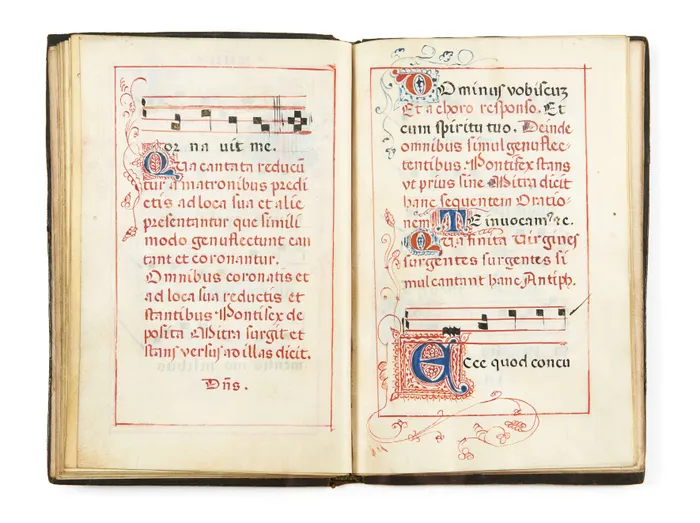 or na uit me.
Qua cantata reducū
tur a matronibus predi
ctis ad loca sua et alie
presentantur que simili
modo genuflectunt can
tant et coronantur.
Omnibus coronatis et
ad loca sua reductis et
stantibus Pontifex de
posita Mitra surgit et
stans versus ad illas dicit.
Dn̄s.
Dominus vobiscuz
Et a choro responso. Et
cum spiritu tuo. Deinde
omnibus simul genuflec-
tentibus. Pontifex stans
vt prius sine Mitra dicit
hanc sequentem Oratio-
nem TE inuocam9 &c.
Qua finita Virgines
surgentes surgentes si
mul cantant hanc Antiph.
Ecce quod concu